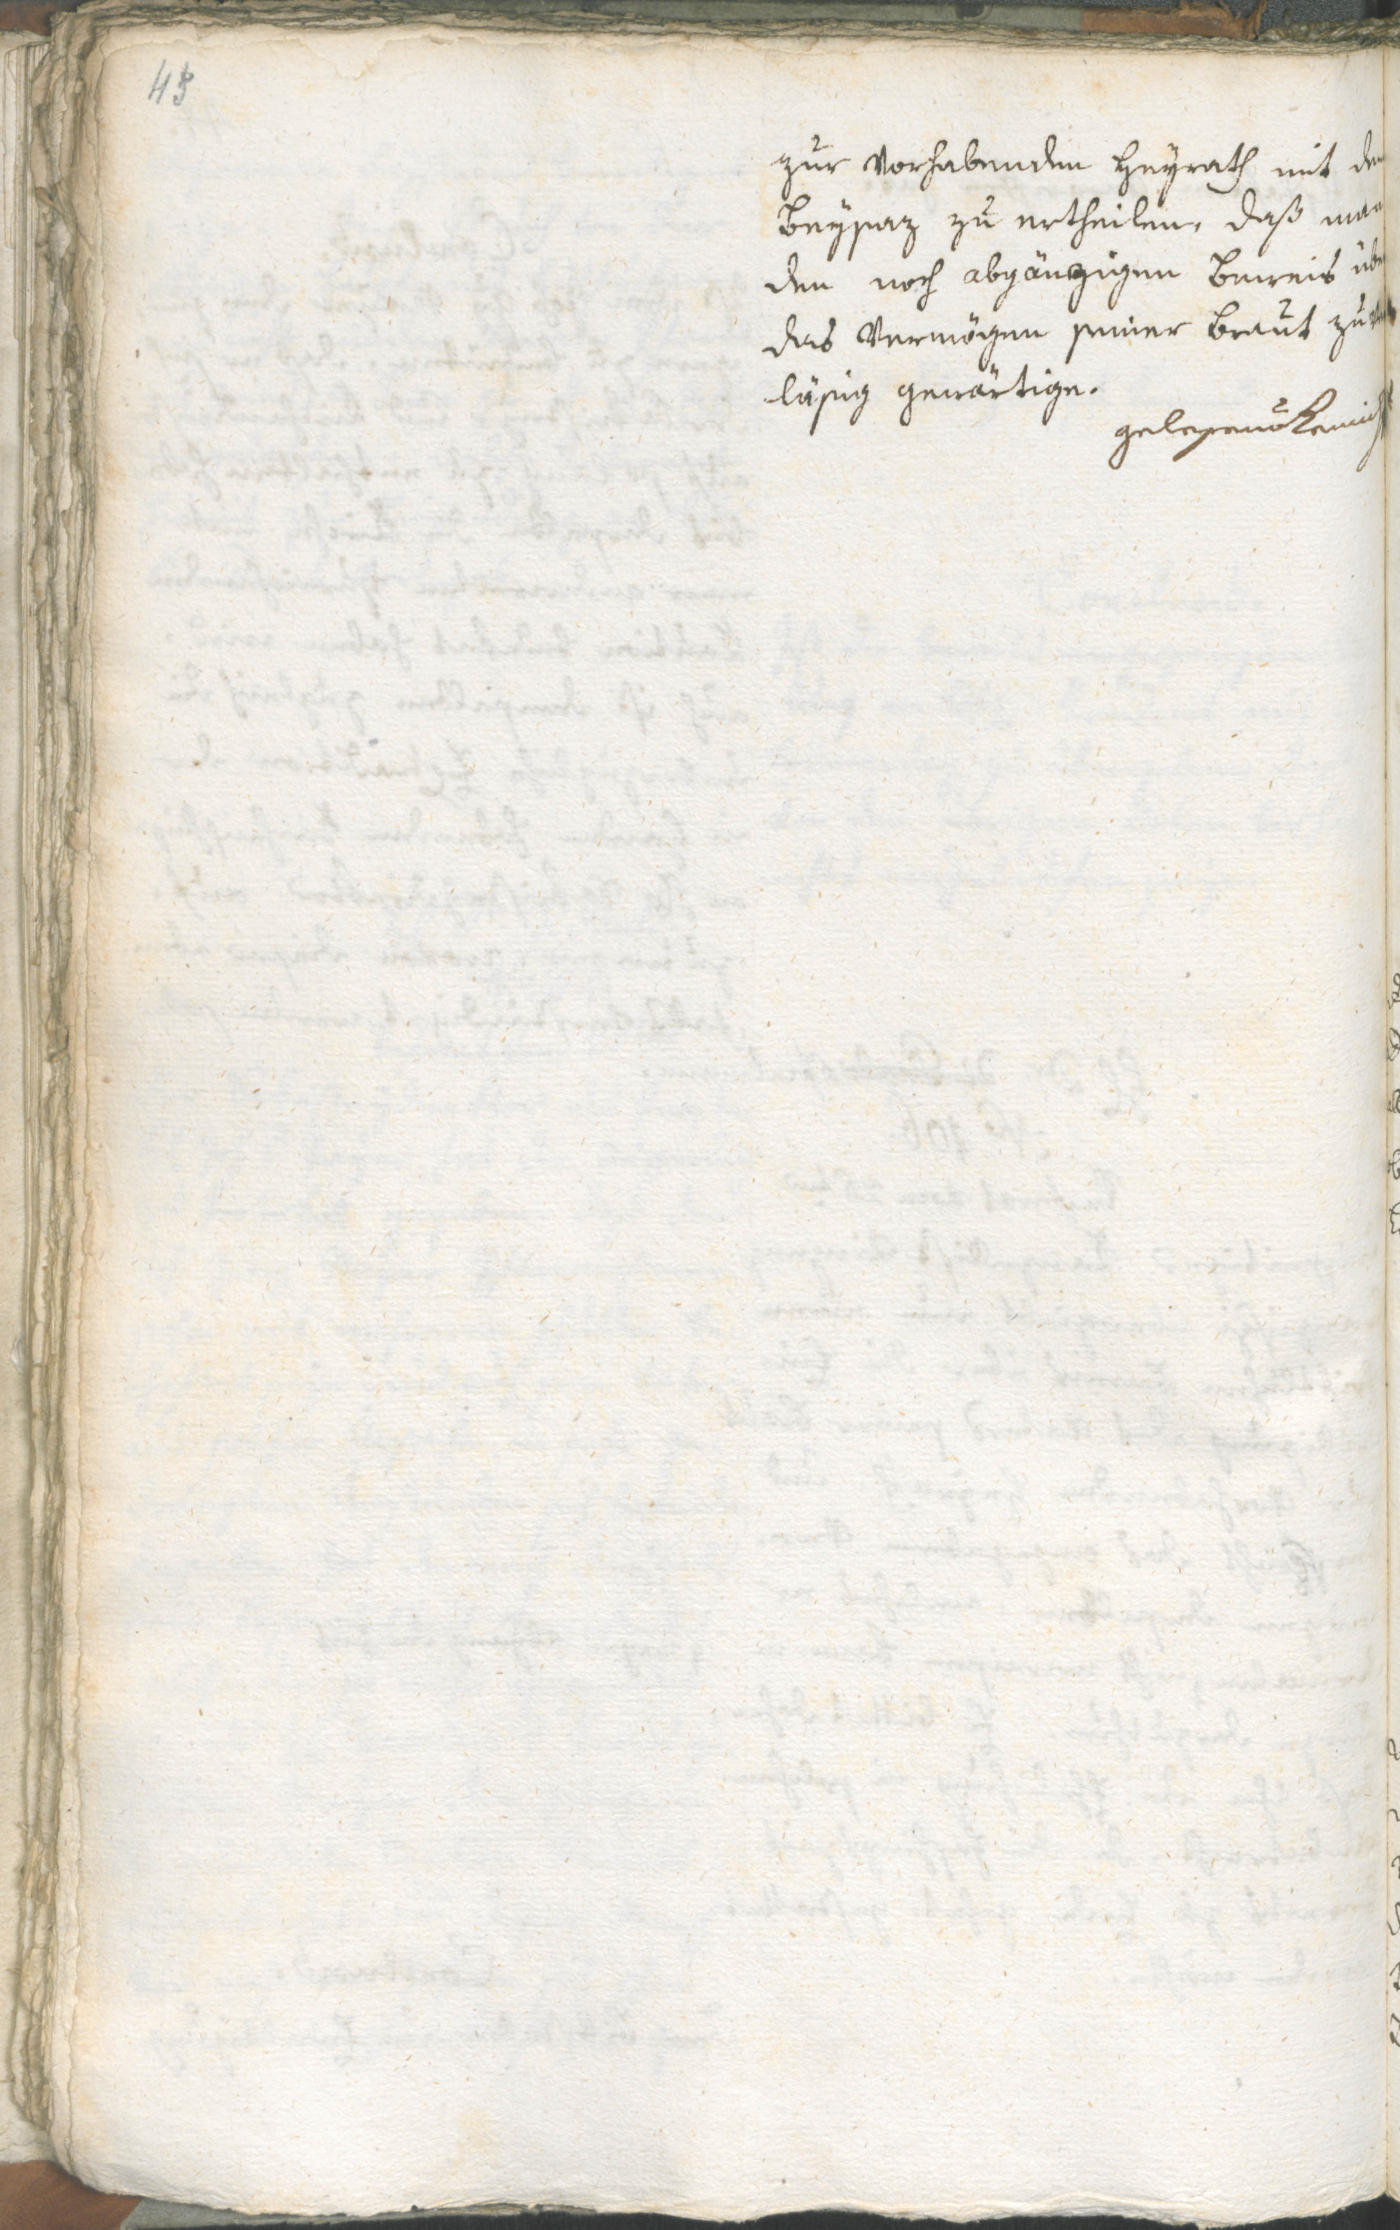 48
zur Vorhabenden Heyrath mit dem
Beysaz zu ertheilen, daß man
den noch abgängigen Beweis über
das Vermögen seiner Braut zuver
läsig gewärtige.
gelesen